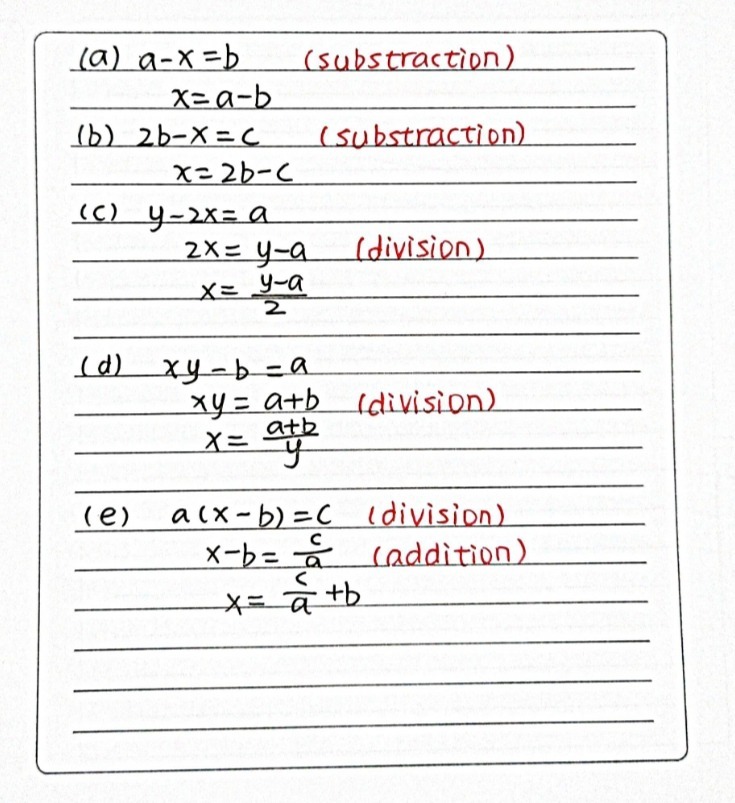 (a) a-x=b (substraction)
x=a-b
(b) 2b-x=c (substraction)
x=2b-c
(c) y-2x=a
2x=y-a (division)
x=\frac{y-a}{2}
(d) xy-b=a
xy=a+b (division)
x=\frac{a+b}{y}
(e) a(x-b)=c (division)
x-b=\frac{c}{a} (addition)
x=\frac{c}{a}+b